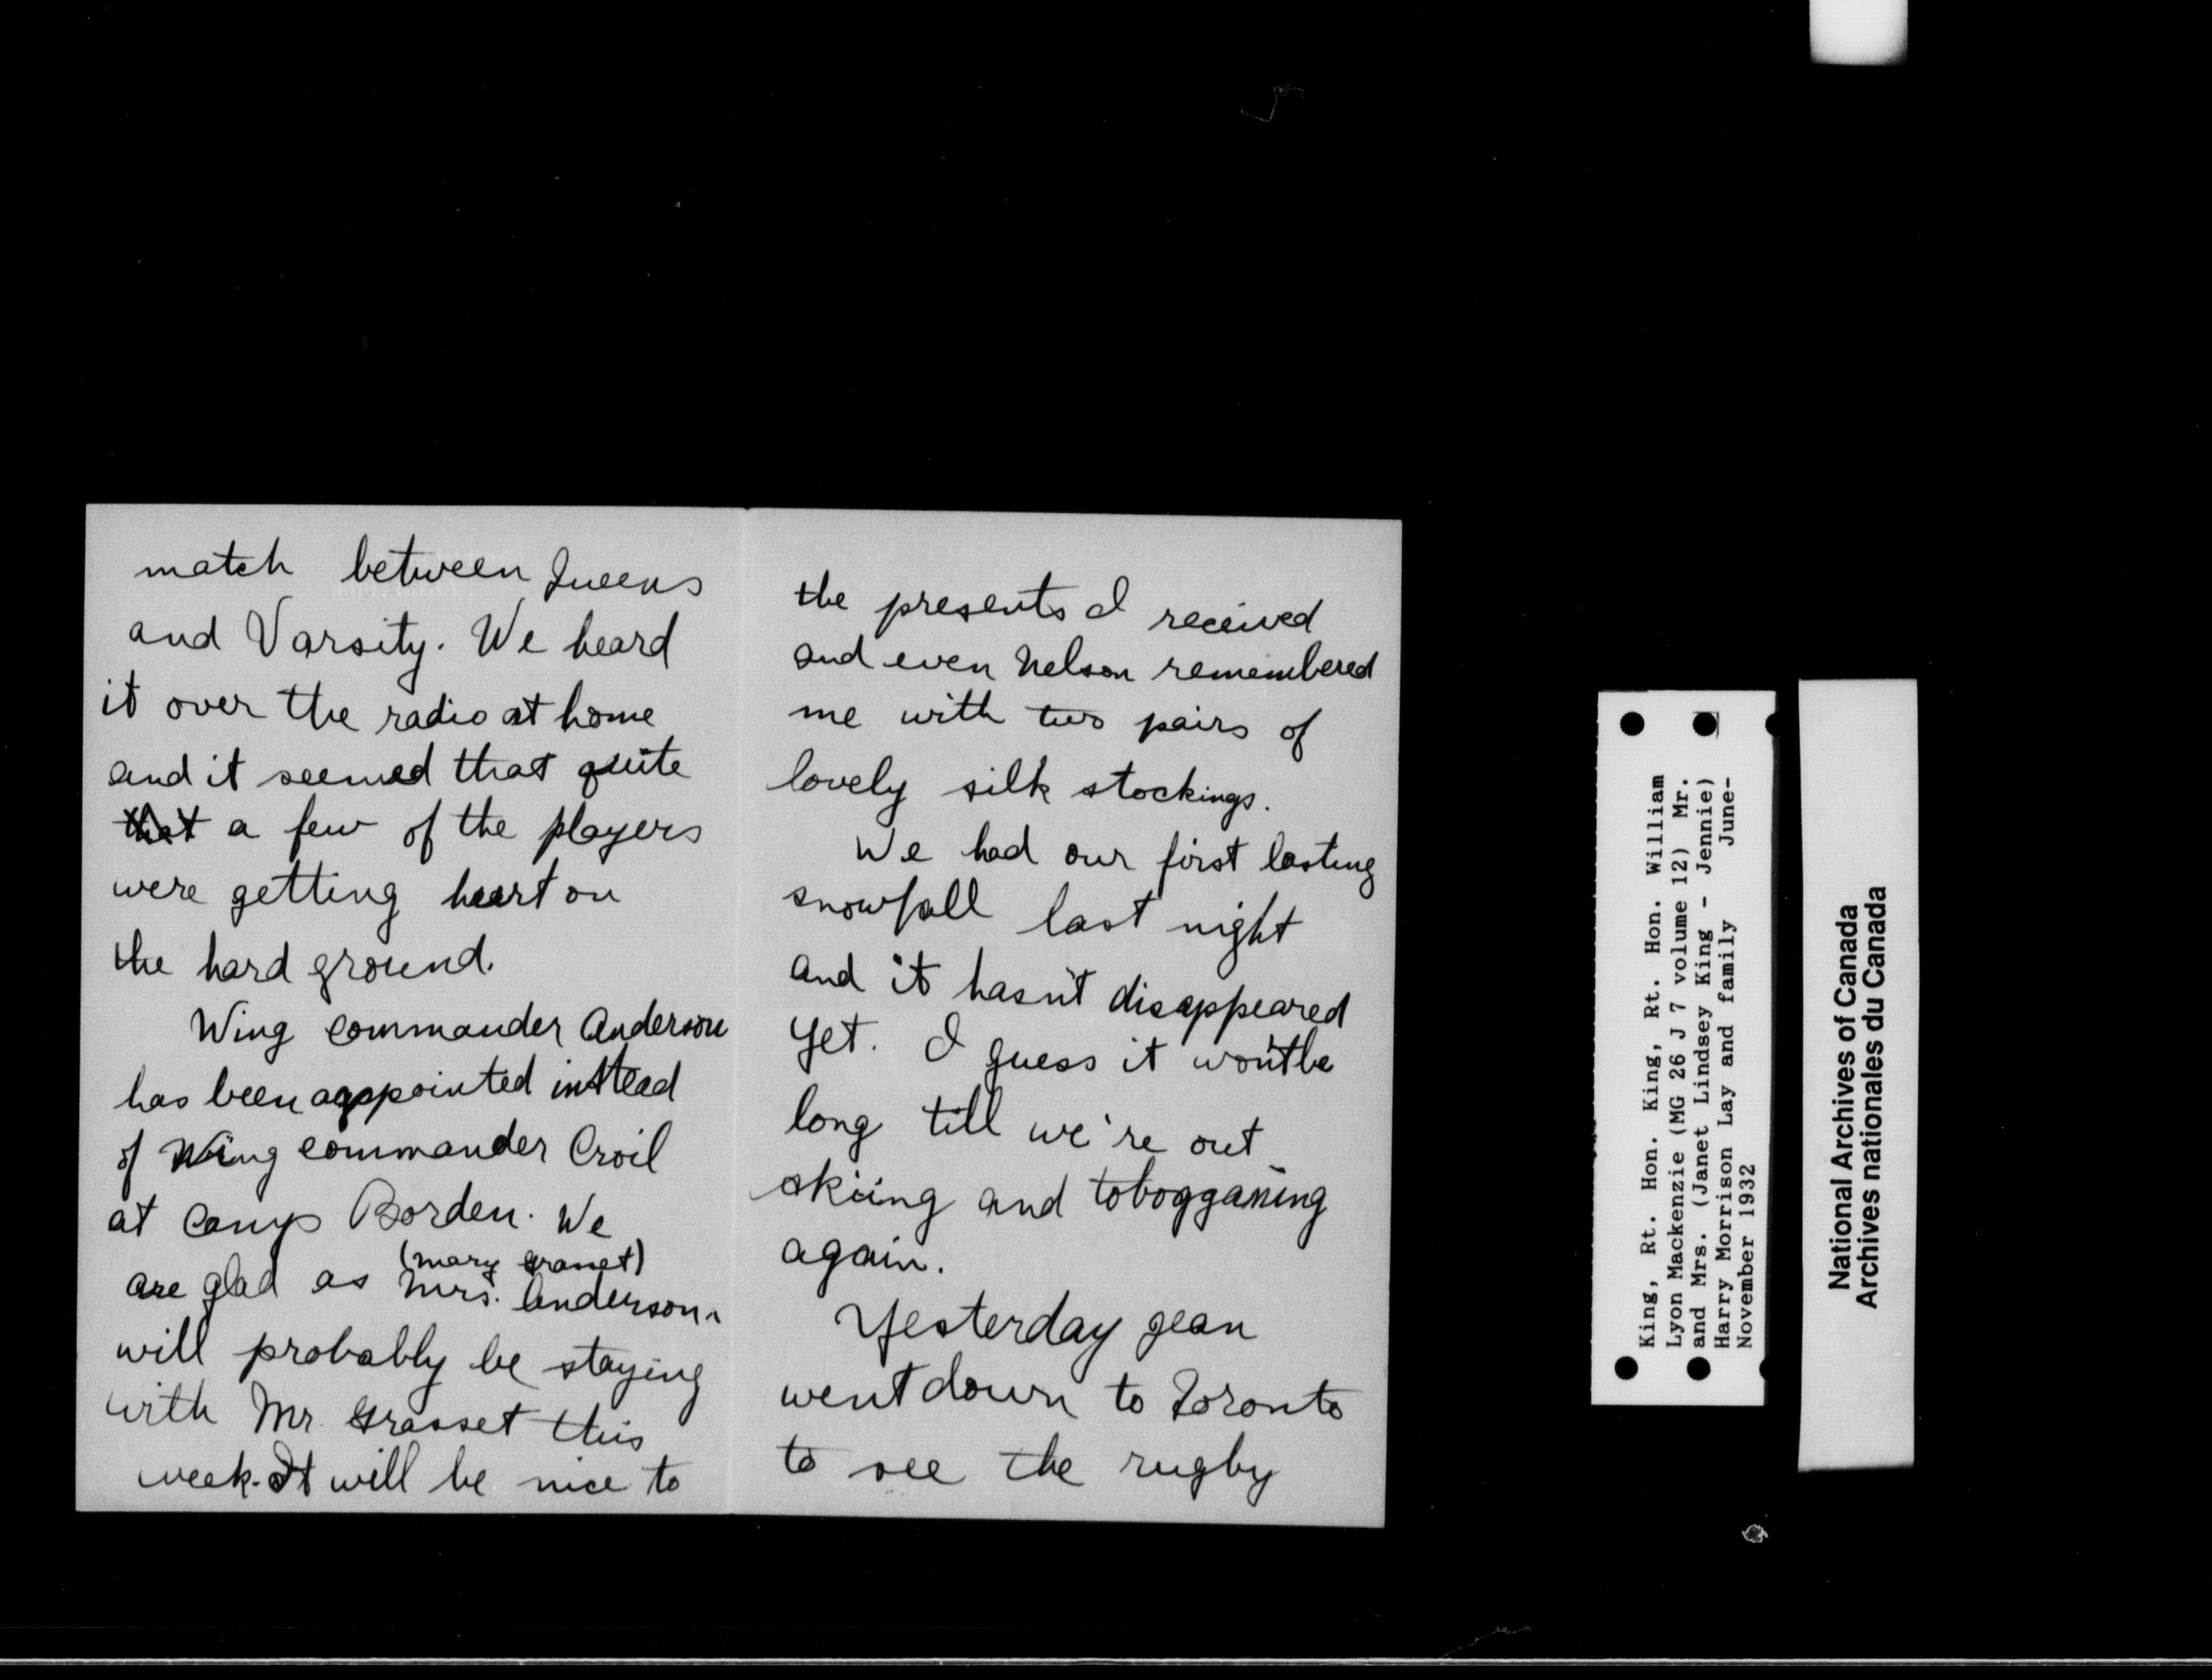 match between Queens
and Varsity. We heard
it over the radio at home
and it seemed that quite
that a few of the players
were getting heart on
the hard ground.
Wing commander Anderson
has been appointed instead
of Wing commander Croil
at Camp Borden. We
(Mary Granet)
are glad as Mrs. Anderson
will probably be staying
with Mr. Grasset this
week. It will be nice to
the presents I received
and even Nelson remembered
me with two pairs of
lovely silk stockings.
We had our first lasting
snowfall last night
and it hasn't disappeared
yet. I guess it won't be
long till we're out
skiing and tobogganing
again.
Yesterday Jean
went down to Toronto
to see the rugby
King, Rt. Hon. King, Rt. Hon. William
Lyon Mackenzie (MG 26 J 7 volume 12) Mr.
and Mrs. (Janet Lindsey King - Jennie)
Harry Morrison Lay and family June-
November 1932
National Archives of Canada
Archives nationales du Canada